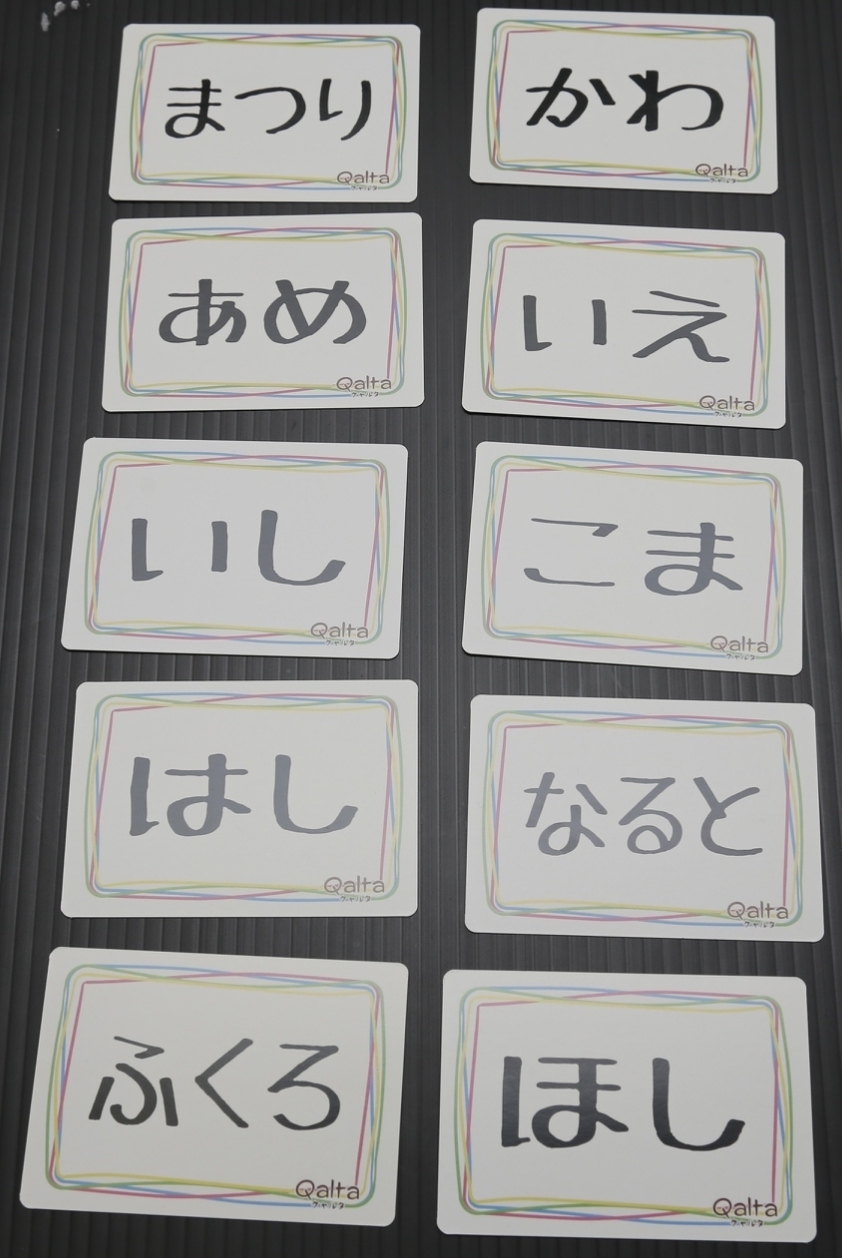 まつり
Qalta
かわ
Qalta
あめ
Qalta
いえ
Qalta
いし
Qalta
こま
Qalta
はし
Qalta
なると
Qalta
ふくろ
Qalta
ほし
Qalta